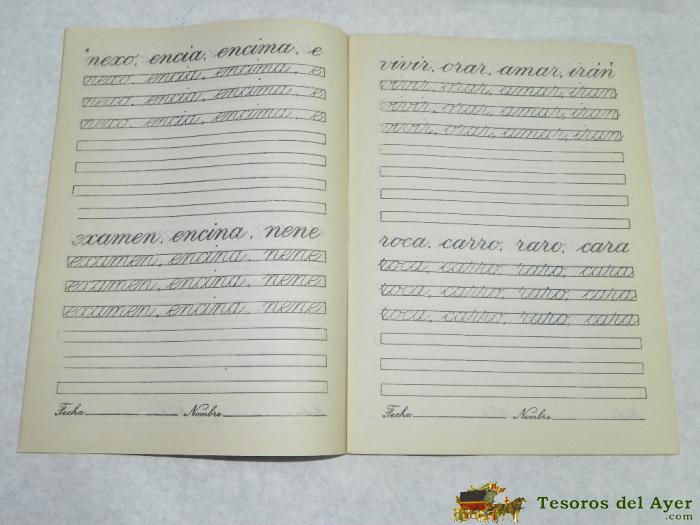 nexo, encia, encima, e
nexo, encia, encima, e
nexo, encia, encima, e
nexo, encia, encima, e
examen, encina, nene
examen, encina, nene
examen, encina, nene
examen, encina, nene
Fecha Nombre
vivir, orar, amar, irán
vivir, orar, amar, iran
vivir, orar, amar, iran
vivir, orar, amar, iran
roca, carro, raro, cara
roca, carro, raro, cara
roca, carro, raro, cara
roca, carro, raro, cara
Fecha Nombre
Tesoros del Ayer
.com